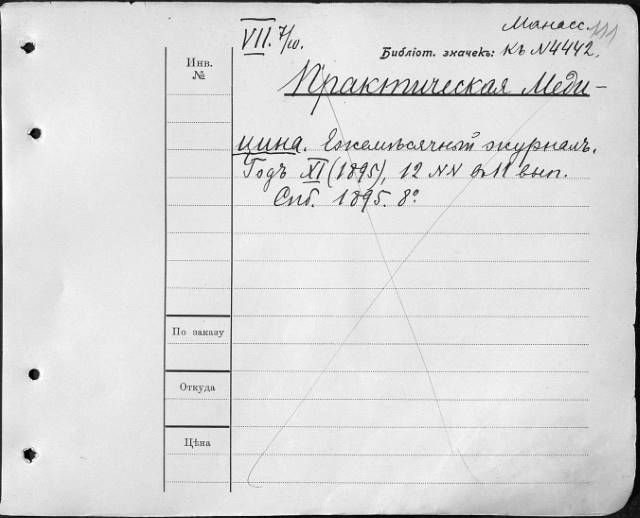 VII. 7/10.
Манасс.
Библіот. значекъ: къ N4442.
Инв.
№
Практическая Меди-
цина. Ежемѣсячный журналъ.
Годъ XI (1895), 12 NN въ 11 вып.
Спб. 1895. 8°
По заказу
Откуда
Цѣна